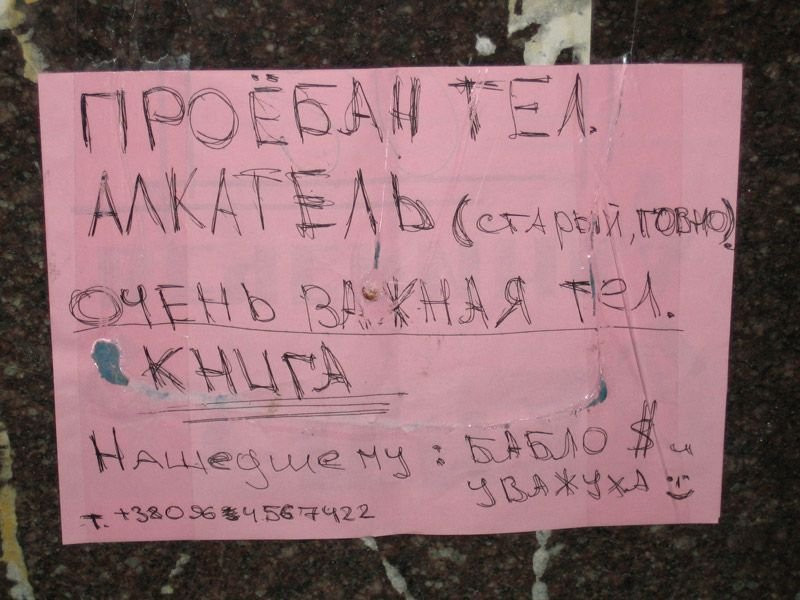 ПРОЁБАН ТЕЛ.
АЛКАТЕЛЬ (СТАРЫЙ, ГОВНО)
ОЧЕНЬ ВАЖНАЯ ТЕЛ.
КНИГА
Нашедшему: БАБЛО $ и
УВАЖУХА :)
т. +38096 4567422